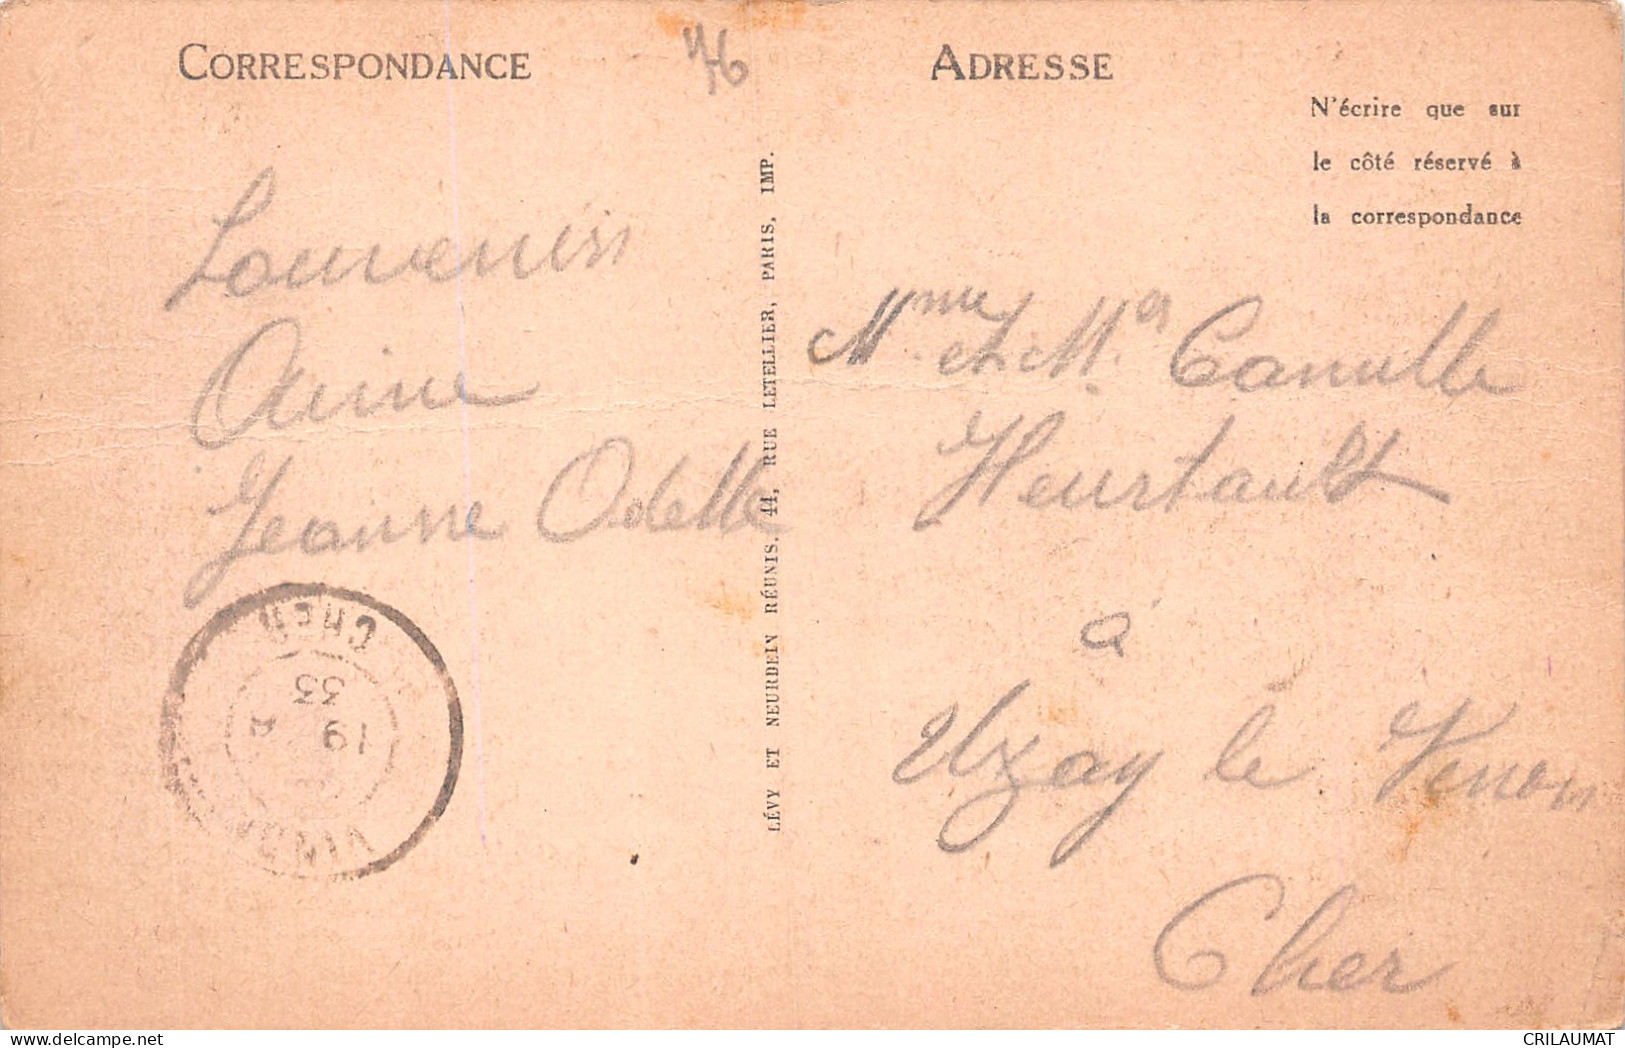 CORRESPONDANCE
76
ADRESSE
N'écrire que sur
le côté réservé à
la correspondance
Jeanne Odette
LÉVY ET NEURDEIN RÉUNIS. 44, RUE LETELLIER, PARIS, IMP.
Mme et Mr Camille
Heurtault
à
Uzay le Venon
Cher
CHER
19
33
CRILAUMAT